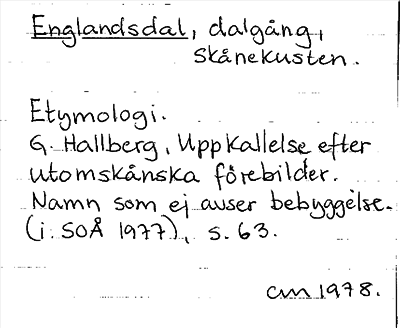 Englandsdal, dalgång,
Skånekusten.
Etymologi.
G. Hallberg, Uppkallelse efter
utomskånska förebilder.
Namn som ej avser bebyggelse.
(i: SOÅ 1977), s. 63.
am 1978.